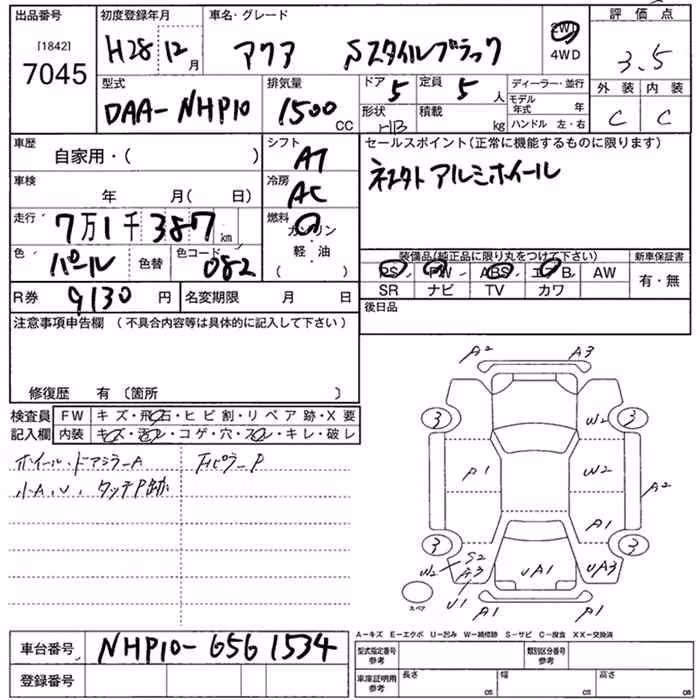 出品番号
[1842]
7045
初度登録年月
H28 12 月
車名・グレード
アクア Sスタイルブラック
2WD
4WD
評価点
3.5
外装 内装
C C
型式
DAA-NHP10
排気量
1500 CC
ドア 5
定員 5 人
形状 HB
積載 kg
ディーラー・並行
モデル年式 年
ハンドル 左・右
車歴
自家用・( )
シフト AT
セールスポイント(正常に機能するものに限ります)
アルミホイール
車検
年 月( 日)
冷房 AC
走行
7万1千387km
燃料
ガソリン
軽・油
( )
色 パール 色替
色コード 082
装備品(純正品に限り丸をつけて下さい)
新車保証書
PS PW ABS エアB AW
SR ナビ TV カワ
有・無
R券 9130 円
名変期限 月 日
後日品
注意事項申告欄 (不具合内容等は具体的に記入して下さい)
修復歴 有 (箇所 )
検査員
記入欄
FW キズ・飛石・ヒビ割・リペア跡・X要
内装 キズ・汚レ・コゲ・穴・スレ・キレ・破レ
ホイール・ドアミラーA
小A、U、タッチP跡
Fピラー P
A2 A3
3 W2 3
P1 W2 A2
A1
3 3
W2 S2 A3 U1
UA1 UA3
スペア
A1 A1
A-キズ E-エクボ U-凹み W-補修跡 S-サビ C-腐食 XX-交換済
車台番号 NHP10-6561534
登録番号
型式指定番号 参考
類別区分番号 参考
車庫証明用 参考
長さ cm
幅 cm
高さ cm